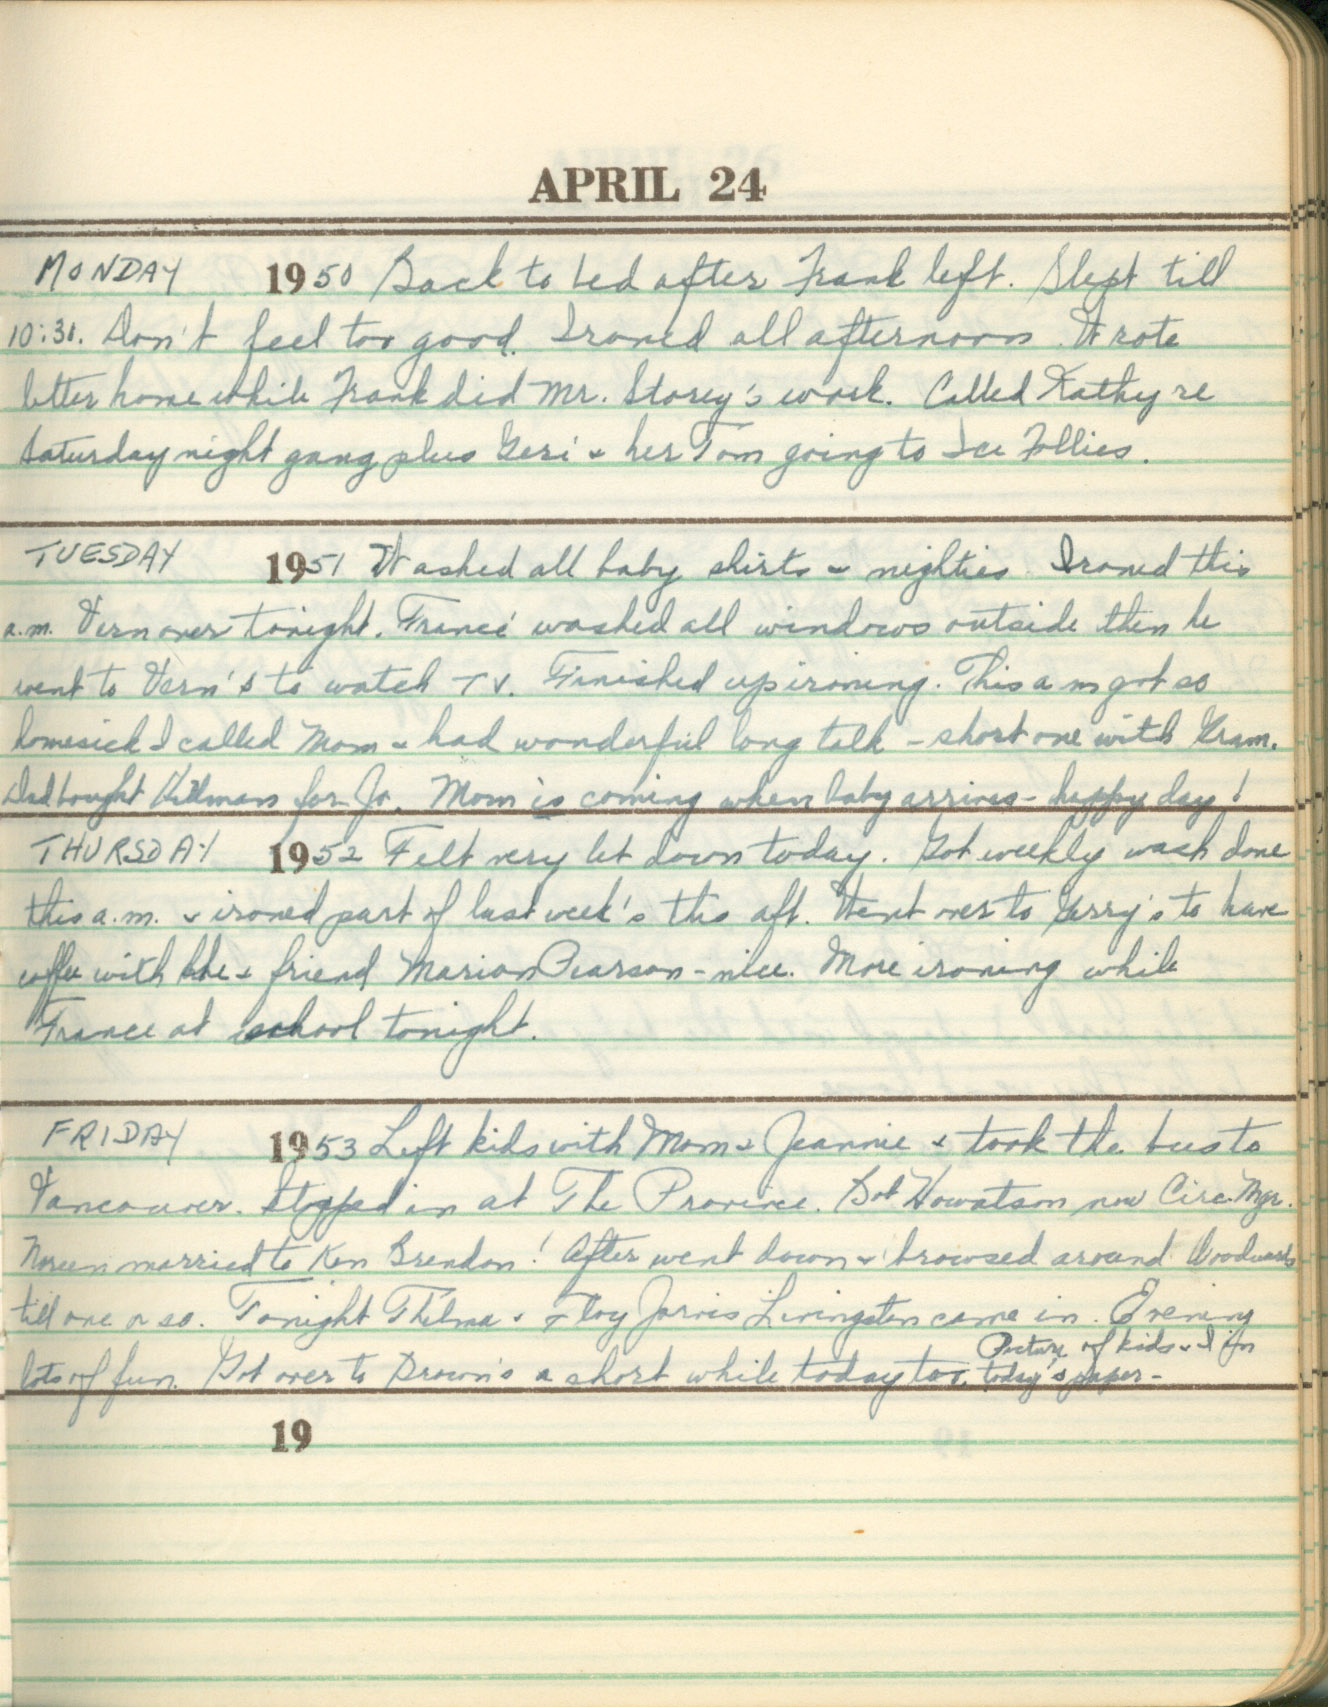 APRIL 24
MONDAY 1950 Back to bed after Frank left. Slept till
10:30. Don't feel too good. Ironed all afternoon. Wrote
letter home while Frank did Mr. Storey's work. Called Kathy re
Saturday night gang plus Geri & her Tom going to Ice Follies.
TUESDAY 1951 Washed all baby shirts & nighties. Ironed this
a.m. Vern over tonight. France washed all windows outside then he
went to Vern's to watch TV. Finished up ironing. This a m got so
homesick I called Mom & had wonderful long talk - short one with Gram.
Dad bought Hillman for Jo. Mom is coming when baby arrives - happy day!
THURSDAY 1952 Felt very let down today. Got weekly wash done
this a.m. & ironed part of last week's this aft. Went over to Gerry's to have
coffee with she & friend Marion Pearson - nice. More ironing while
France at school tonight.
FRIDAY 1953 Left kids with Mom & Jeannie & took the bus to
Vancouver. Stopped in at The Province. Bob Howatson now Circ. Mgr.
Noreen married to Ken Brendon! After went down & browsed around Woodwards
till one or so. Tonight Thelma & Floy Jarvis Livingston came in. Evening
lots of fun. Got over to Brown's a short while today too. Picture of kids & I in
today's paper -
19